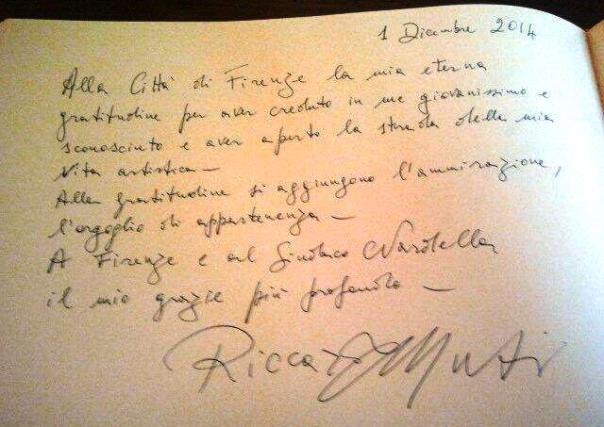 1 Dicembre 2014
Alla Città di Firenze la mia eterna
gratitudine per aver creduto in me giovanissimo e
sconosciuto e aver aperto la strada della mia
vita artistica —
Alla gratitudine si aggiungono l'ammirazione,
l'orgoglio di appartenenza —
A Firenze e al Sindaco Nardella
il mio grazie più profondo —
Riccardo Muti